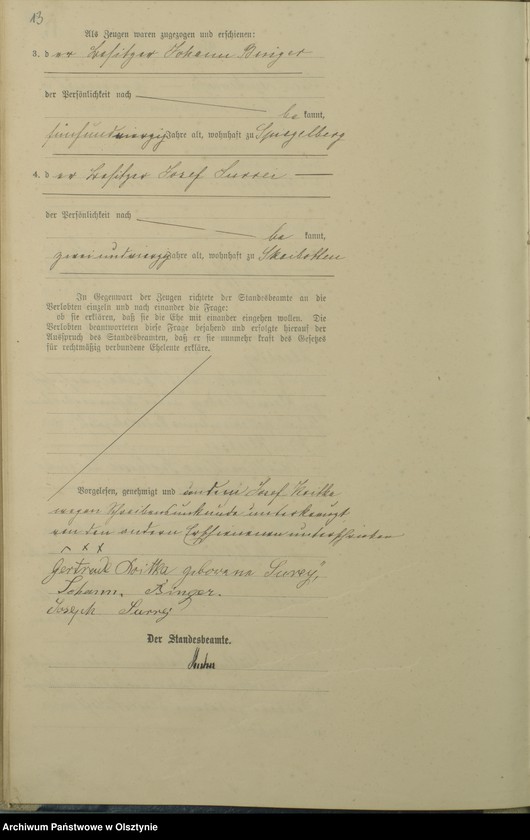 13
Als Zeugen waren zugezogen und erschienen:
3. der Besitzer Johann Binger
der Persönlichkeit nach
be kannt,
fünfund Jahre alt, wohnhaft zu Spiegelberg
4. der Besitzer Josef Surrei
der Persönlichkeit nach
be kannt,
zweiund Jahre alt, wohnhaft zu Skaibotten
In Gegenwart der Zeugen richtete der Standesbeamte an die
Verlobten einzeln und nach einander die Frage:
ob sie erklären, daß sie die Ehe mit einander eingehen wollen. Die
Verlobten beantworteten diese Frage bejahend und erfolgte hierauf der
Ausspruch des Standesbeamten, daß er sie nunmehr kraft des Gesetzes
für rechtmäßig verbundene Eheleute erkläre.
Vorgelesen, genehmigt und Josef
wegen Schreibensunkunde unterkreuzt,
von den andern Erschienenen unterschrieben
x x x
Gertrud geborene Surrey,
Johann Binger.
Joseph Surrey
Der Standesbeamte.
Archiwum Państwowe w Olsztynie